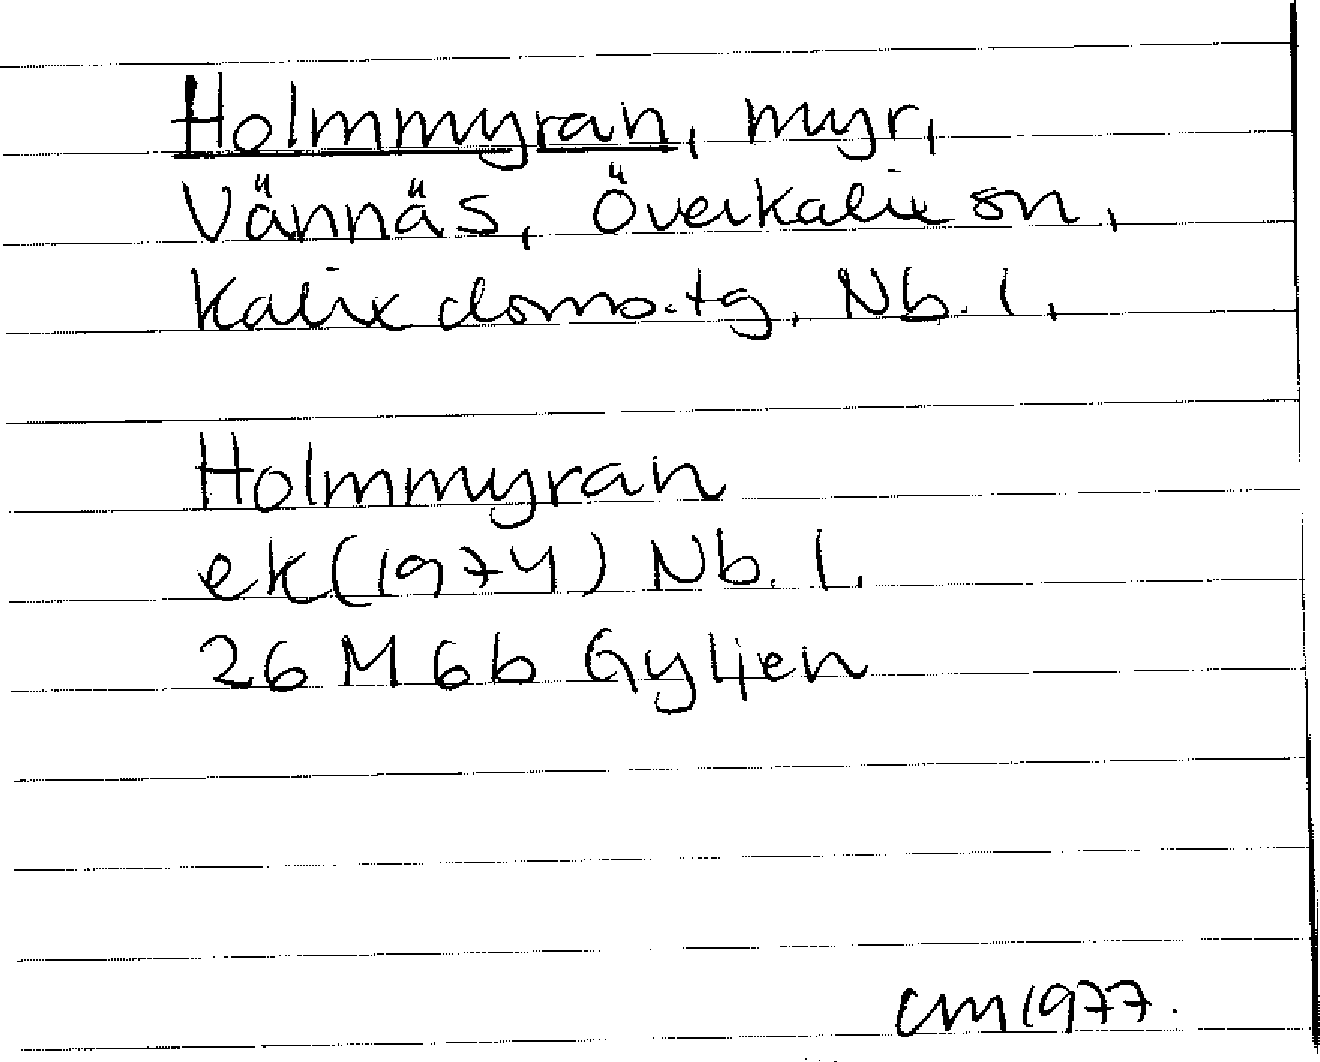 Holmmyran, myr,
Vännäs, Överkalix sn,
Kalix doms.tg, Nb. l.
Holmmyran
ek (1974) Nb. l.
26 M 6b Gyljen
CM 1977.